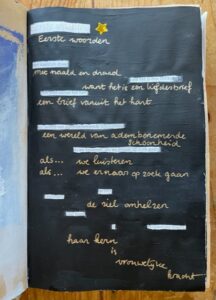 Eerste woorden
met naald en draad
want hetis een liefdesbrief
een brief vanuit het hart
een wereld van adembenemende
schoonheid
als... we luisteren
als... we ernaar op zoek gaan
de ziel omhelzen
haar kern
is
vrouwelijke
kracht